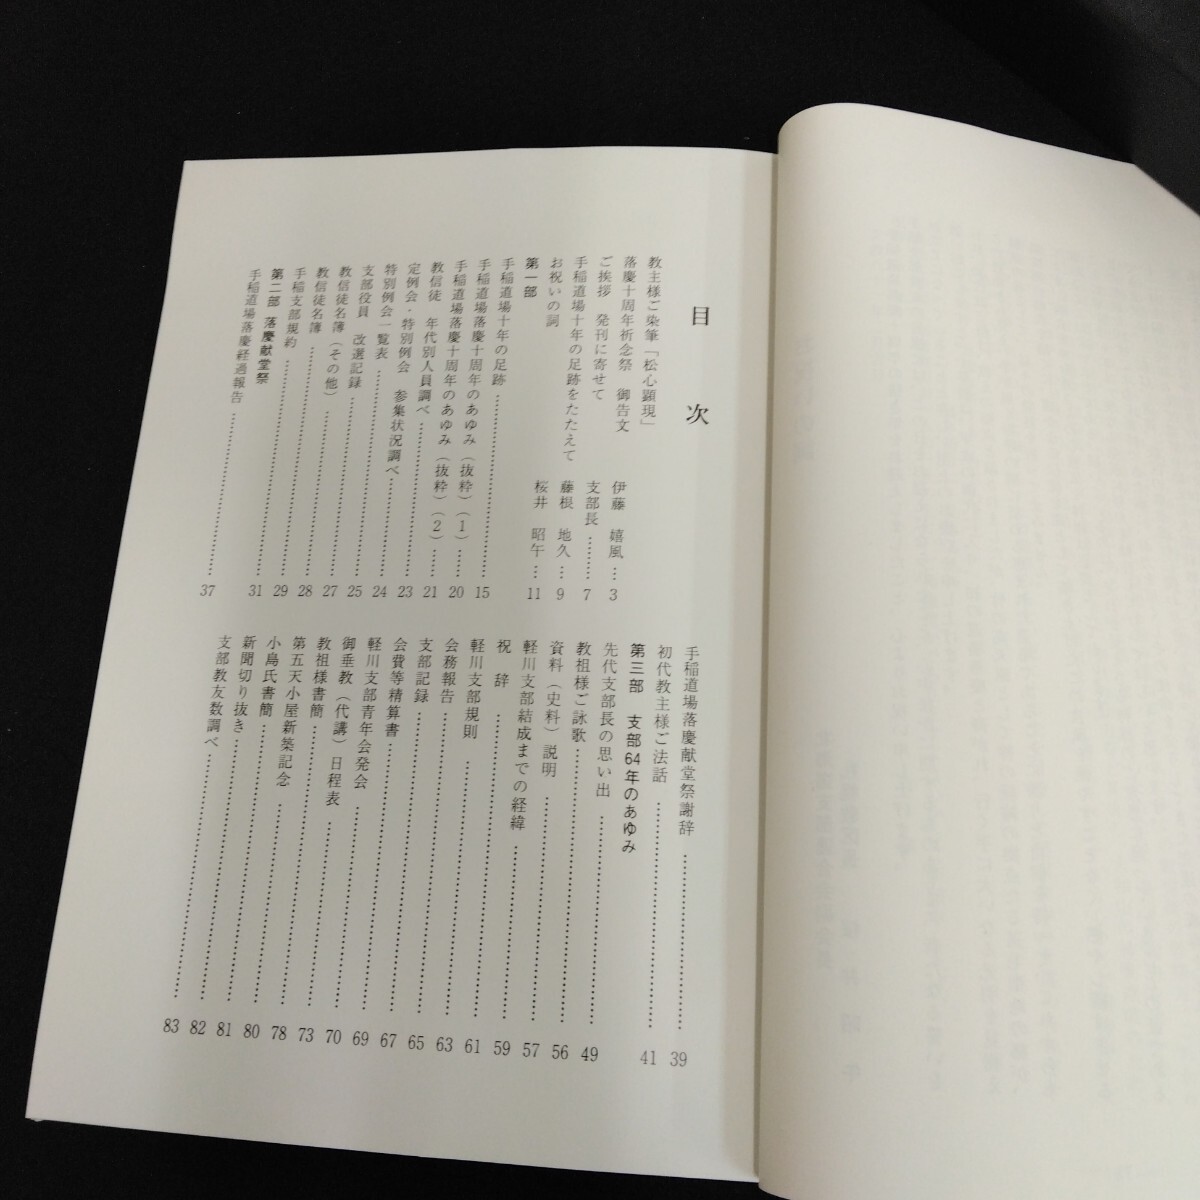 目次
教主様ご染筆「松心顕現」
落慶十周年祈念祭 御告文 伊藤 嬉風…3
ご挨拶 発刊に寄せて 支部長………7
手稲道場十年の足跡をたたえて 藤根 地久…9
お祝いの詞 桜井 昭午…11
第一部
手稲道場十年の足跡………15
手稲道場落慶十周年のあゆみ（抜粋）（1）……20
手稲道場落慶十周年のあゆみ（抜粋）（2）……21
教信徒 年代別人員調べ………23
定例会・特別例会 参集状況調べ………24
特別例会一覧表………25
支部役員 改選記録………27
教信徒名簿（その他）………28
教信徒名簿………29
手稲支部規約………31
第二部 落慶献堂祭
手稲道場落慶経過報告………37
手稲道場落慶献堂祭謝辞………39
初代教主様ご法話………41
第三部 支部64年のあゆみ
先代支部長の思い出………49
教祖様ご詠歌………56
資料（史料）説明………57
軽川支部結成までの経緯………59
祝辞………61
軽川支部規則………63
会務報告………65
支部記録………67
会費等精算書………69
軽川支部青年会発会………70
御垂教（代講）日程表………73
教祖様書簡………78
第五天小屋新築記念………80
小島氏書簡………81
新聞切り抜き………82
支部教友数調べ………83